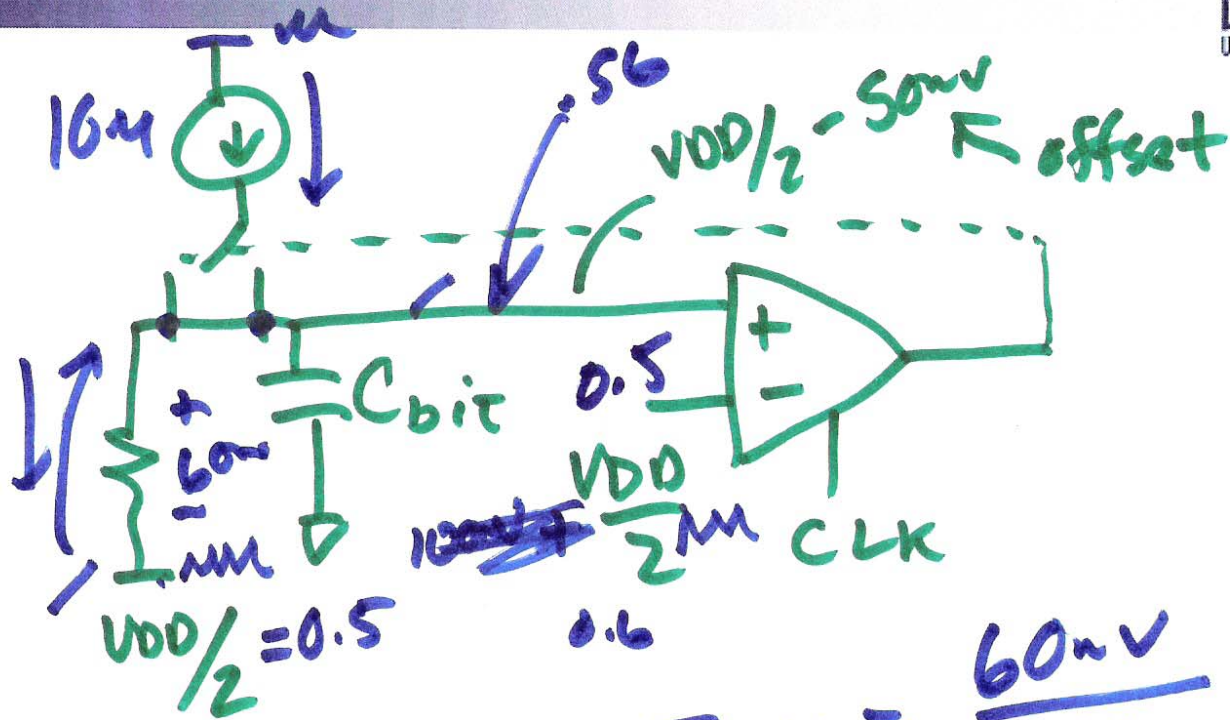 10u
.56
VDD/2 - 50mV
offset
+
-
0.5
+
60m
-
Cbit
VDD/2
CLK
VDD/2 = 0.5
0.6
60mV